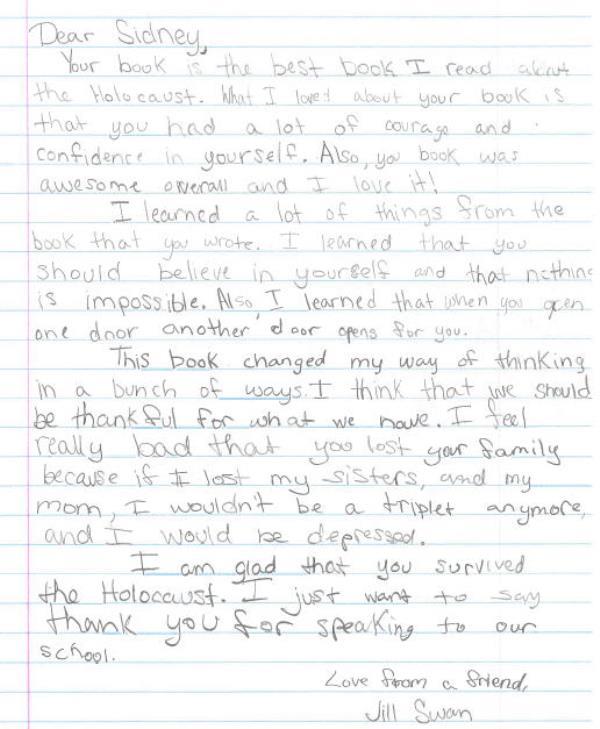 Dear Sidney,
Your book is the best book I read about
the Holocaust. What I loved about your book is
that you had a lot of courage and
confidence in yourself. Also, you book was
awesome overall and I love it!
I learned a lot of things from the
book that you wrote. I learned that you
should believe in yourself and that nothing
is impossible. Also, I learned that when you open
one door another door opens for you.
This book changed my way of thinking
in a bunch of ways. I think that we should
be thankful for what we have. I feel
really bad that you lost your family
because if I lost my sisters, and my
mom, I wouldn't be a triplet anymore,
and I would be depressed.
I am glad that you survived
the Holocaust. I just want to say
thank you for speaking to our
school.
Love from a friend,
Jill Swan